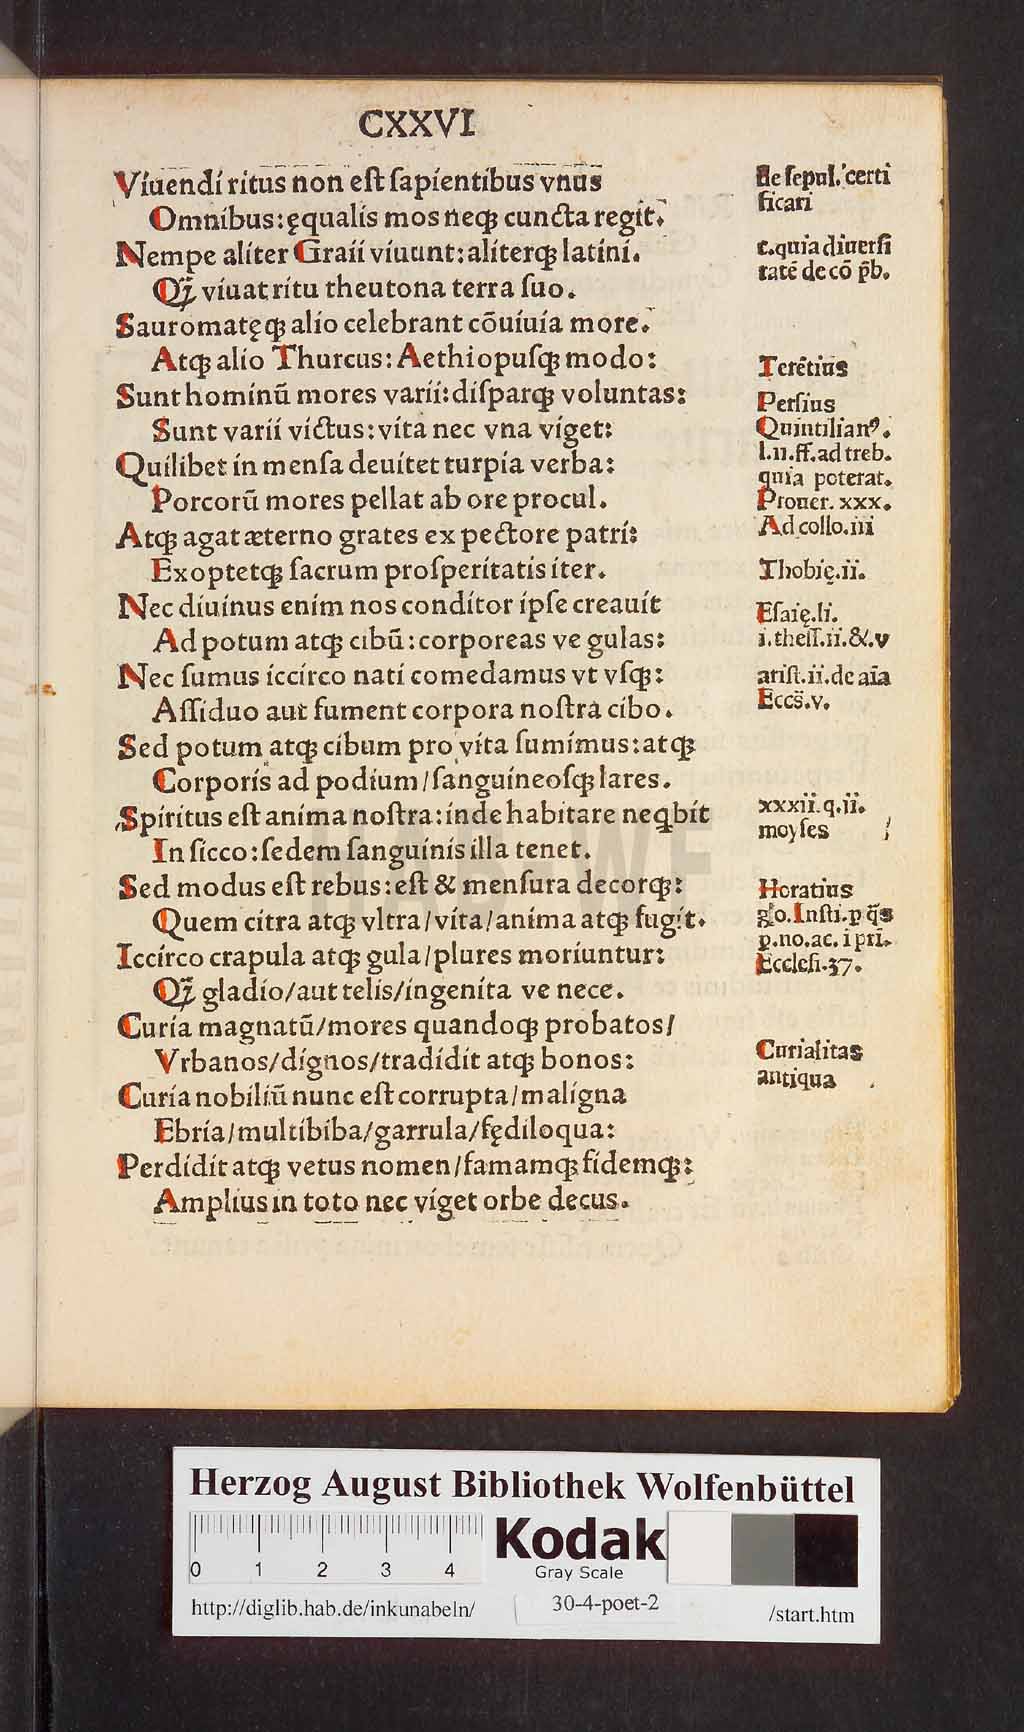 CXXVI
Viuendi ritus non eſt ſapientibus vnus
Omnibus: ęqualis mos neqꝫ cuncta regit.
Nempe aliter Graii viuunt: aliterqꝫ latini.
Qꝫ̄ viuat ritu theutona terra ſuo.
Sauromatęqꝫ alio celebrant cōuiuia more.
Atqꝫ alio Thurcus: Aethiopuſqꝫ modo:
Sunt hominū mores varii: diſparqꝫ voluntas:
Sunt varii victus: vita nec vna viget:
Quilibet in menſa deuitet turpia verba:
Porcorū mores pellat ab ore procul.
Atqꝫ agat æterno grates ex pectore patri:
Exoptetqꝫ ſacrum proſperitatis iter.
Nec diuinus enim nos conditor ipſe creauit
Ad potum atqꝫ cibū: corporeas ve gulas:
Nec ſumus iccirco nati comedamus vt vſqꝫ:
Aſſiduo aut fument corpora noſtra cibo.
Sed potum atqꝫ cibum pro vita ſumimus: atqꝫ
Corporis ad podium/ſanguineoſqꝫ lares.
Spiritus eſt anima noſtra: inde habitare neqbit
In ſicco: ſedem ſanguinis illa tenet.
Sed modus eſt rebus: eſt & menſura decorqꝫ:
Quem citra atqꝫ vltra/vita/anima atqꝫ fugit.
Iccirco crapula atqꝫ gula/plures moriuntur:
Qꝫ̄ gladio/aut telis/ingenita ve nece.
Curia magnatū/mores quandoqꝫ probatos/
Vrbanos/dignos/tradidit atqꝫ bonos:
Curia nobiliū nunc eſt corrupta/maligna
Ebria/multibiba/garrula/fędiloqua:
Perdidit atqꝫ vetus nomen/famamqꝫ fidemqꝫ:
Amplius in toto nec viget orbe decus.
de ſepul. certi
ficari
c. quia diuerſi
tatē de cō p̄b.
Terētius
Perſius
Quintilianꝰ.
l.11.ff. ad treb.
quia poterat.
Prouer. xxx.
Ad collo.iii
Thobię.ii.
Eſaię.li.
i.theſſ.ii.&.v
ariſt.ii.de aīa
Eccs̄.v.
xxxii.q.ii.
moyſes
Horatius
glo. Inſti. p q̄s
p. no. ac. i pri.
Eccleſi.37.
Curialitas
antiqua
HAB WF
Herzog August Bibliothek Wolfenbüttel
0 1 2 3 4
Kodak
Gray Scale
http://diglib.hab.de/inkunabeln/
30-4-poet-2
/start.htm